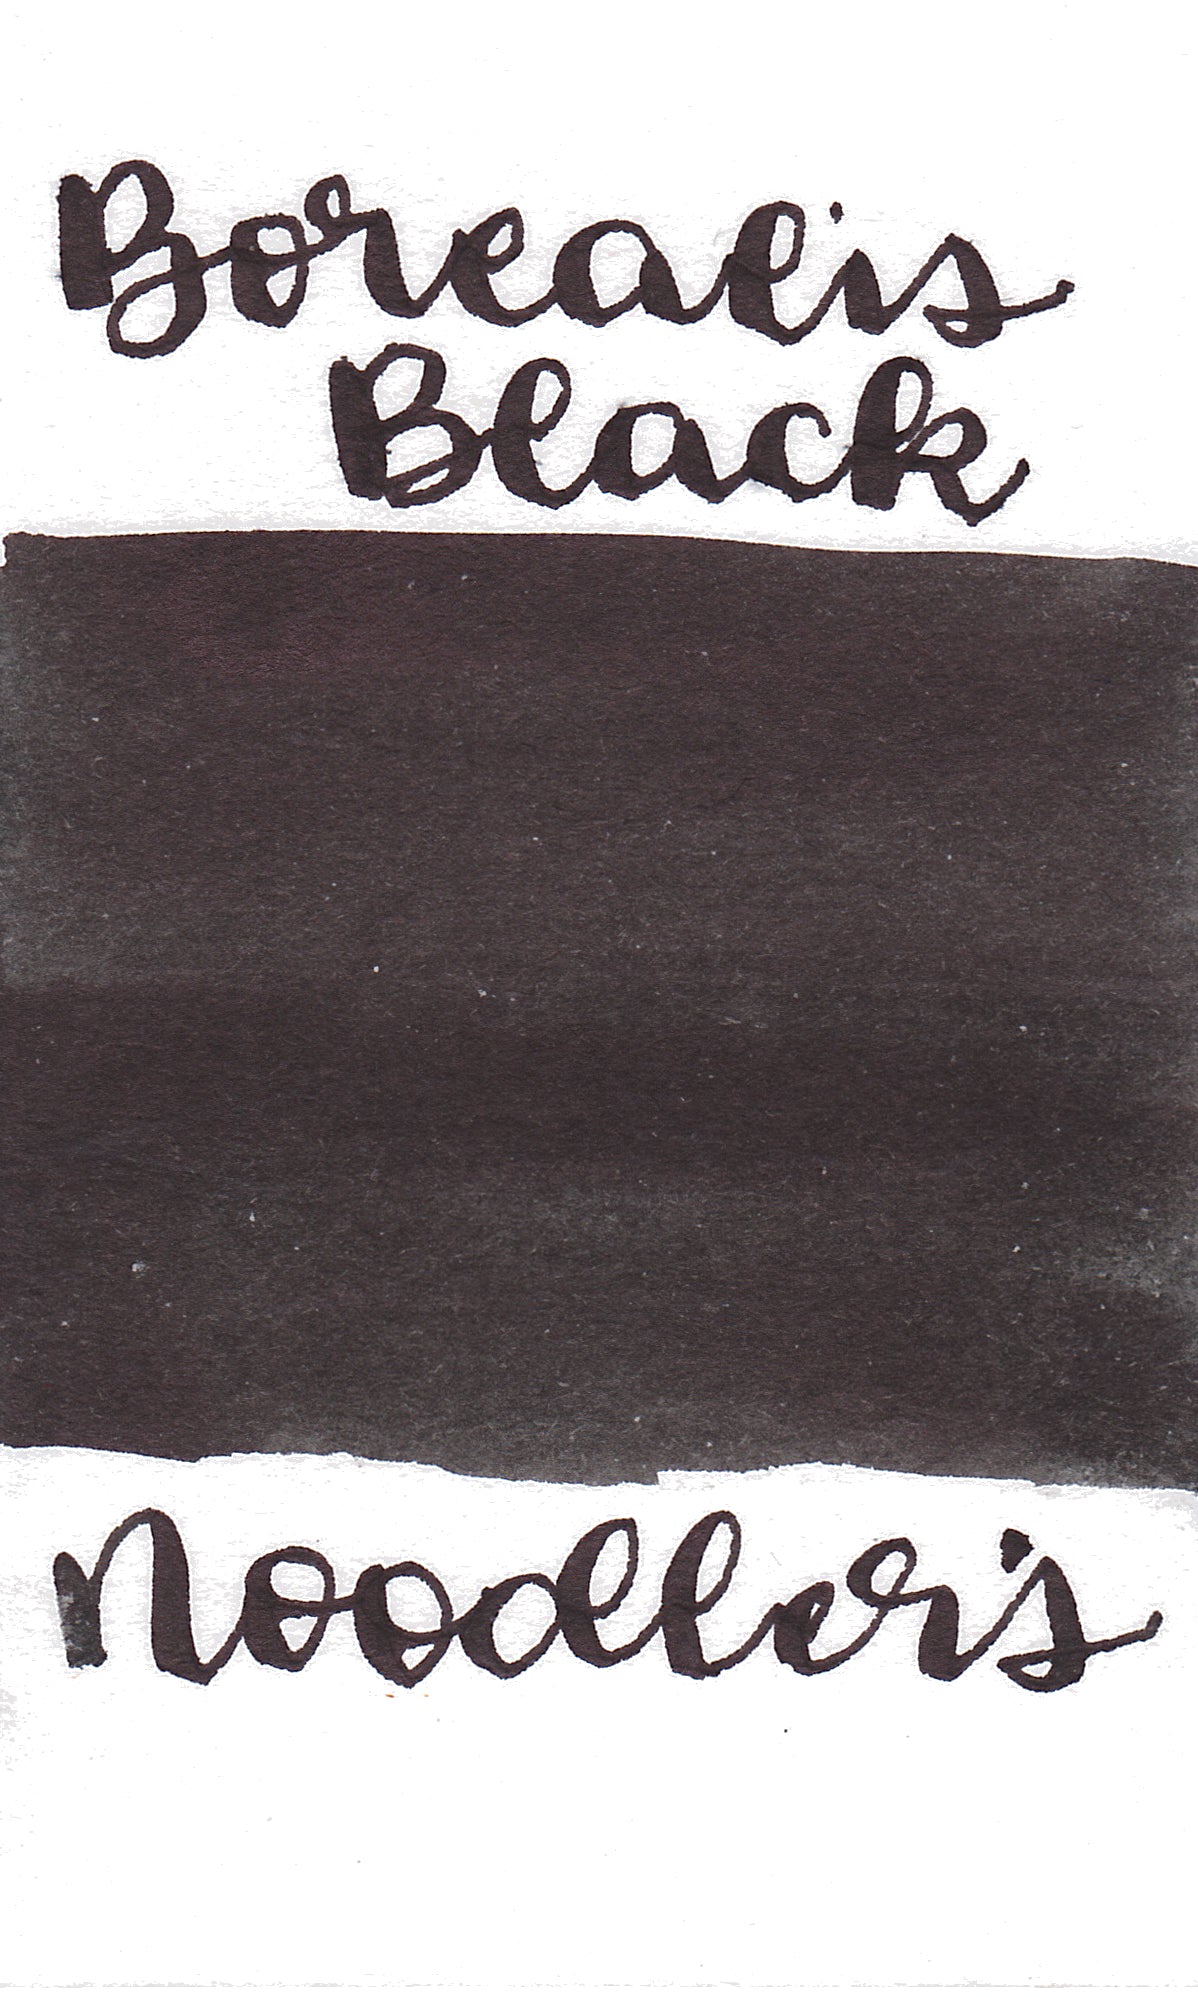 Borealis
Black
Noodler's